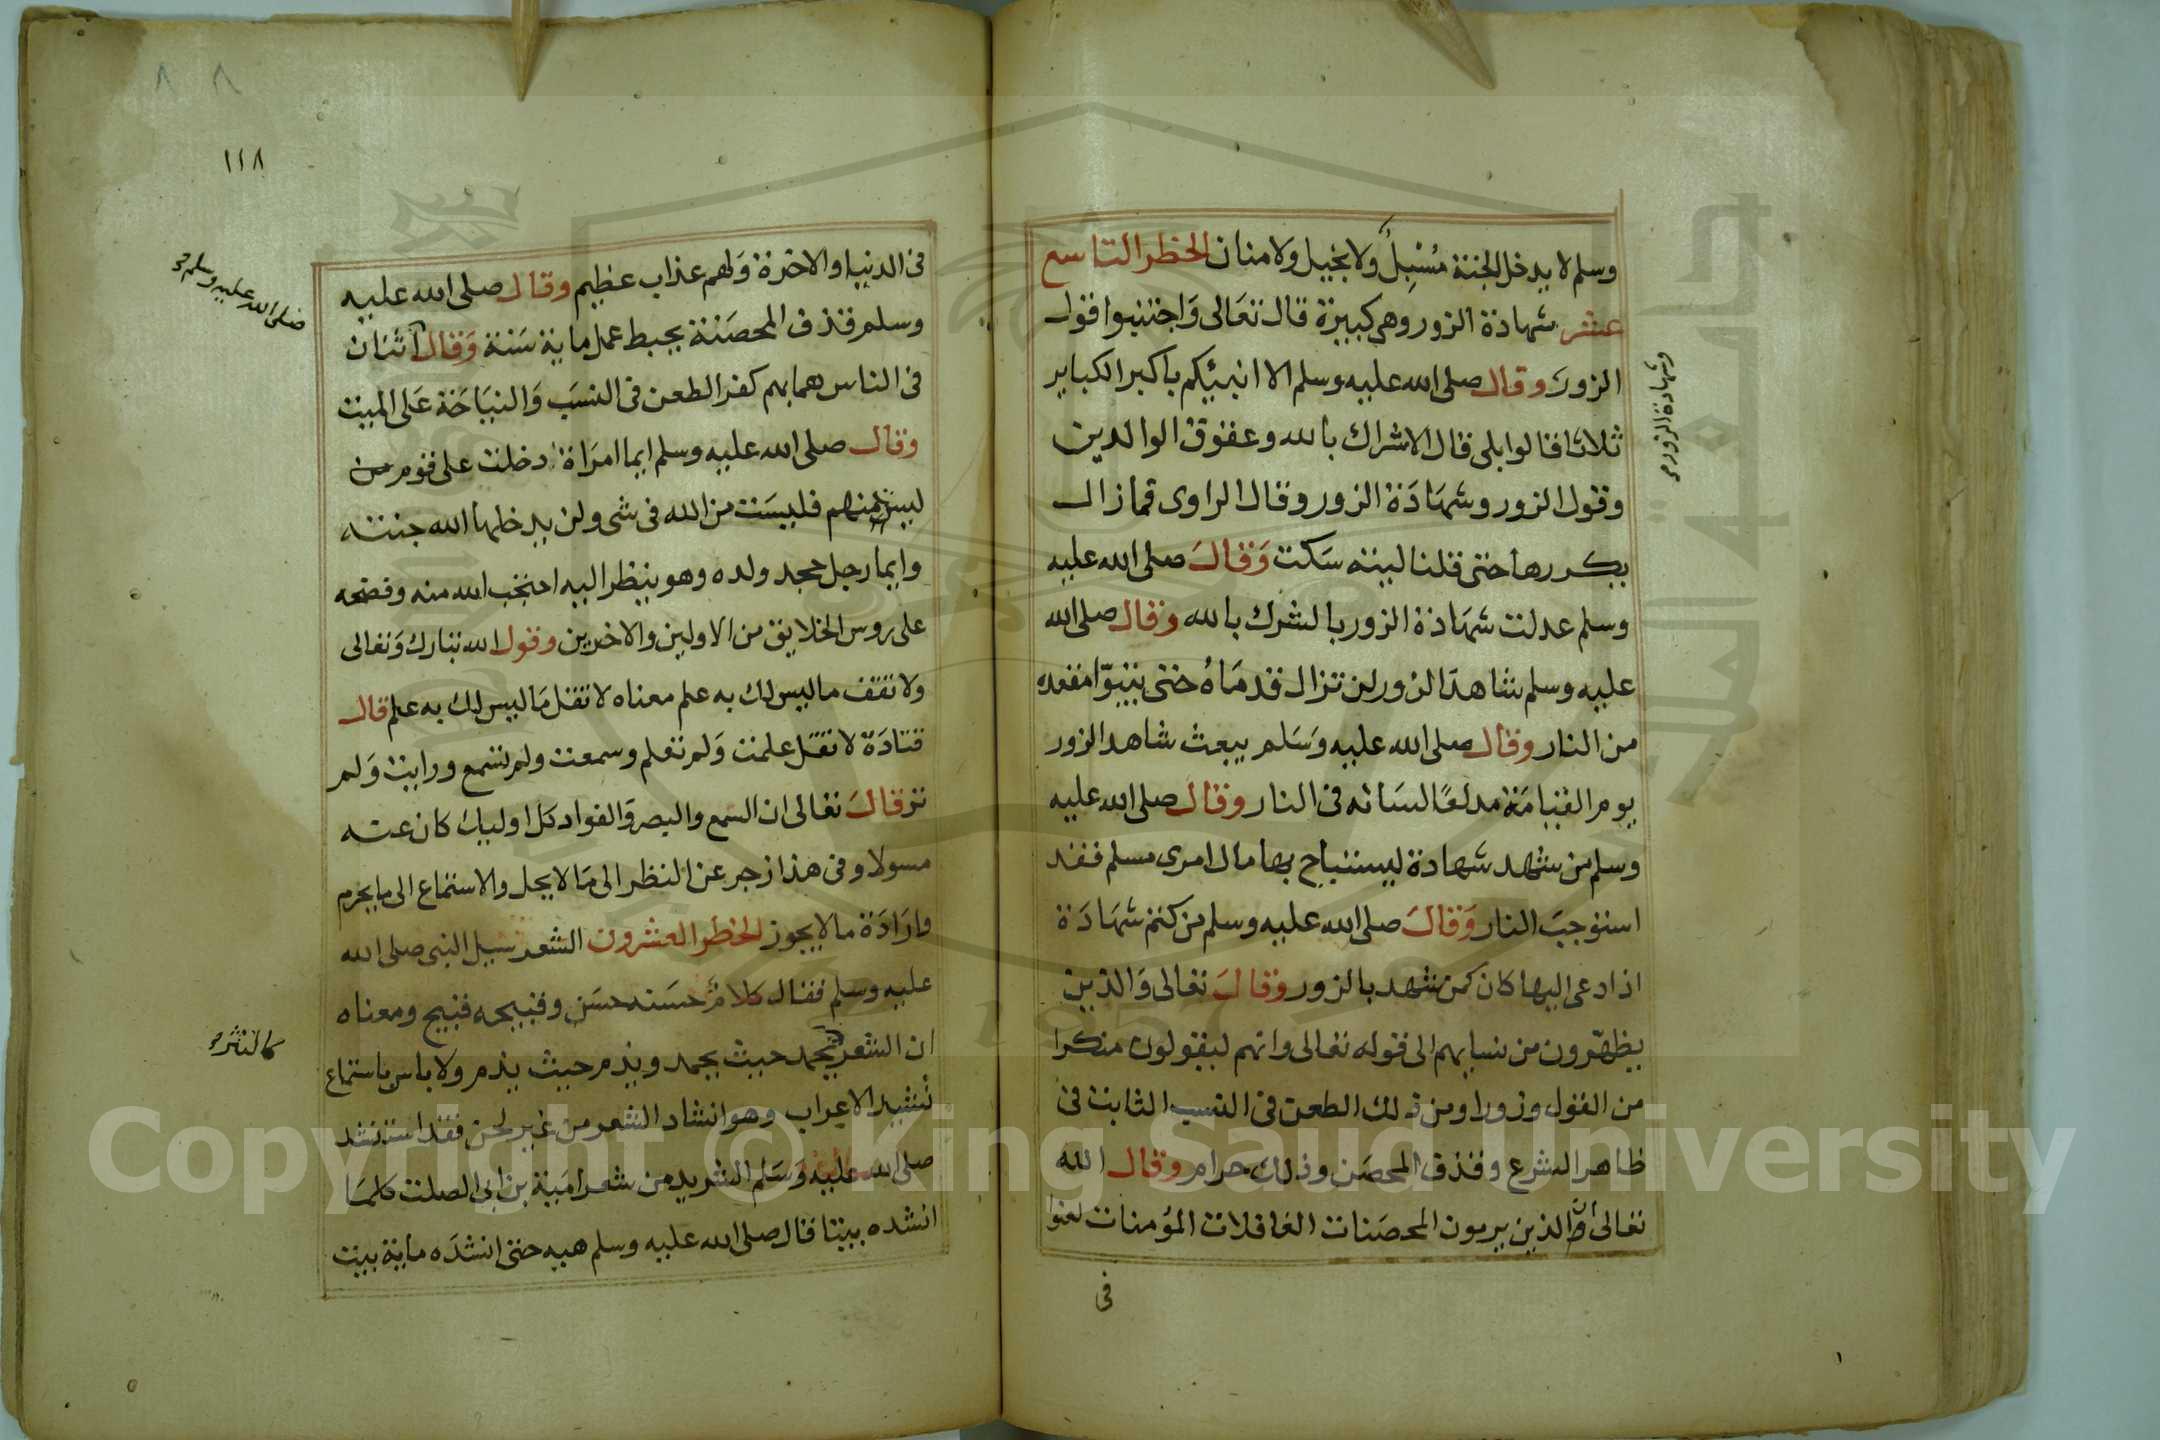 وسلم لا يدخل الجنة مُسْبِلٌ ولا بخيل ولا منان الحظر التاسع
عشر شهادة الزور وهي كبيرة قال تعالى وَاجتنبوا قول
الزور وقال صلى الله عليه وسلم الا انبيئكم باكبر الكباير
ثلاثا قالوا بلى قال الاشراك بالله وعقوق الوالدين
وقول الزور وشهَادَة الزور وقال الراوى فما زال
يكررها حتى قلنا ليته سَكت وَقالَ صلى الله عليه
وسلم عدلت شهَادة الزور بالشرك بالله وقال صلى الله
عليه وسلم شاهدَ الزور لن تزال قدمَاهُ حتى يتبوّا مقعده
من النار وقال صلى الله عليه وَسَلم يبعث شاهد الزور
يوم القيامَة مدلعًا لسَانه فى النار وقال صلى الله عليه
وسلم من شهد شهادة ليستباح بها مال امرى مسلم فقد
استوجبَ النار وَقالَ صلى الله عليه وسلم من كتم شهَادَة
اذا دعى اليها كان كمن شهد بالزور وقالَ تعالى وَالذين
يظهّرون من نسايهم الى قوله تعالى وانهم ليقولون منكرا
من القول وزورا ومن ذلك الطعن فى النسب الثابت فى
ظاهر الشرع وقذف المحصَن وذلك حرام وقال الله
تعالى ان الذين يرمون المحصَنات الغافلات المؤمنات لعنوا
فى
وشهادة الزور صح
١١٨
فى الدنيا والاخرة وَلهم عذاب عظيم وقال صلى الله عليه
وسلم قذف المحصَنة يحبط عمل ماية سَنة وَقال اثنان
فى الناس هما بهم كفر الطعن فى النسَب وَالنيَاحَة عَلى الميت
وقال صلى الله عليه وسلم ايما امرَاة دخلت على قوم من
ليس منهم فليسَت من الله فى شى ولن يدخلها الله جنته
وايما رجل جحد ولده وهو ينظر اليه احتجب الله منه وفضحه
على روس الخلايق من الاولين والاخرين وقول الله تبارك وَتعالى
ولا تقف ما ليس لك به علم معناه لا تقل مَا ليس لك به علم قال
قتادَة لا تقل علمت وَلم تعلم وسمعت ولم تسمع ورايت وَلم
تر قالَ تعالى ان السمع والبصر وَالفواد كل اوليك كان عنه
مسولا وفى هذا زجر عن النظر الى مَا لا يحل والاستماع الى ما يحرم
وارَادَة ما لا يجوز الحظر العشرون الشعر سيل النبى صلى الله
عليه وسلم فقال كلامٌ حسَنه حسَن وقبيحه قبيح ومعناه
ان الشعر يحمد حيث يحمد ويذم حيث يذم ولا باس باستماع
نشيد الاعراب وهو انشاد الشعر من غير لحن فقد استنشد
صلى الله عليه وَسَلم الشريد من شعر امَية بن ابى الصلت كلمَا
انشده بيتا قال صلى الله عليه وسلم هيه حتى انشدَه ماية بيت
صلى الله عليه وسلم صح
كالنثر صح
Copyright © King Saud University
1957